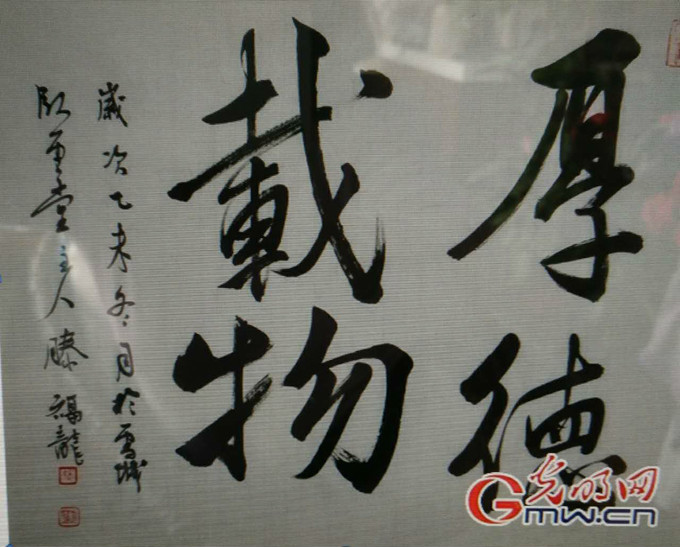 厚德
載物
歲次乙未冬月於雪城
臥雲堂主人滕福龍
光明网
GMW.cn